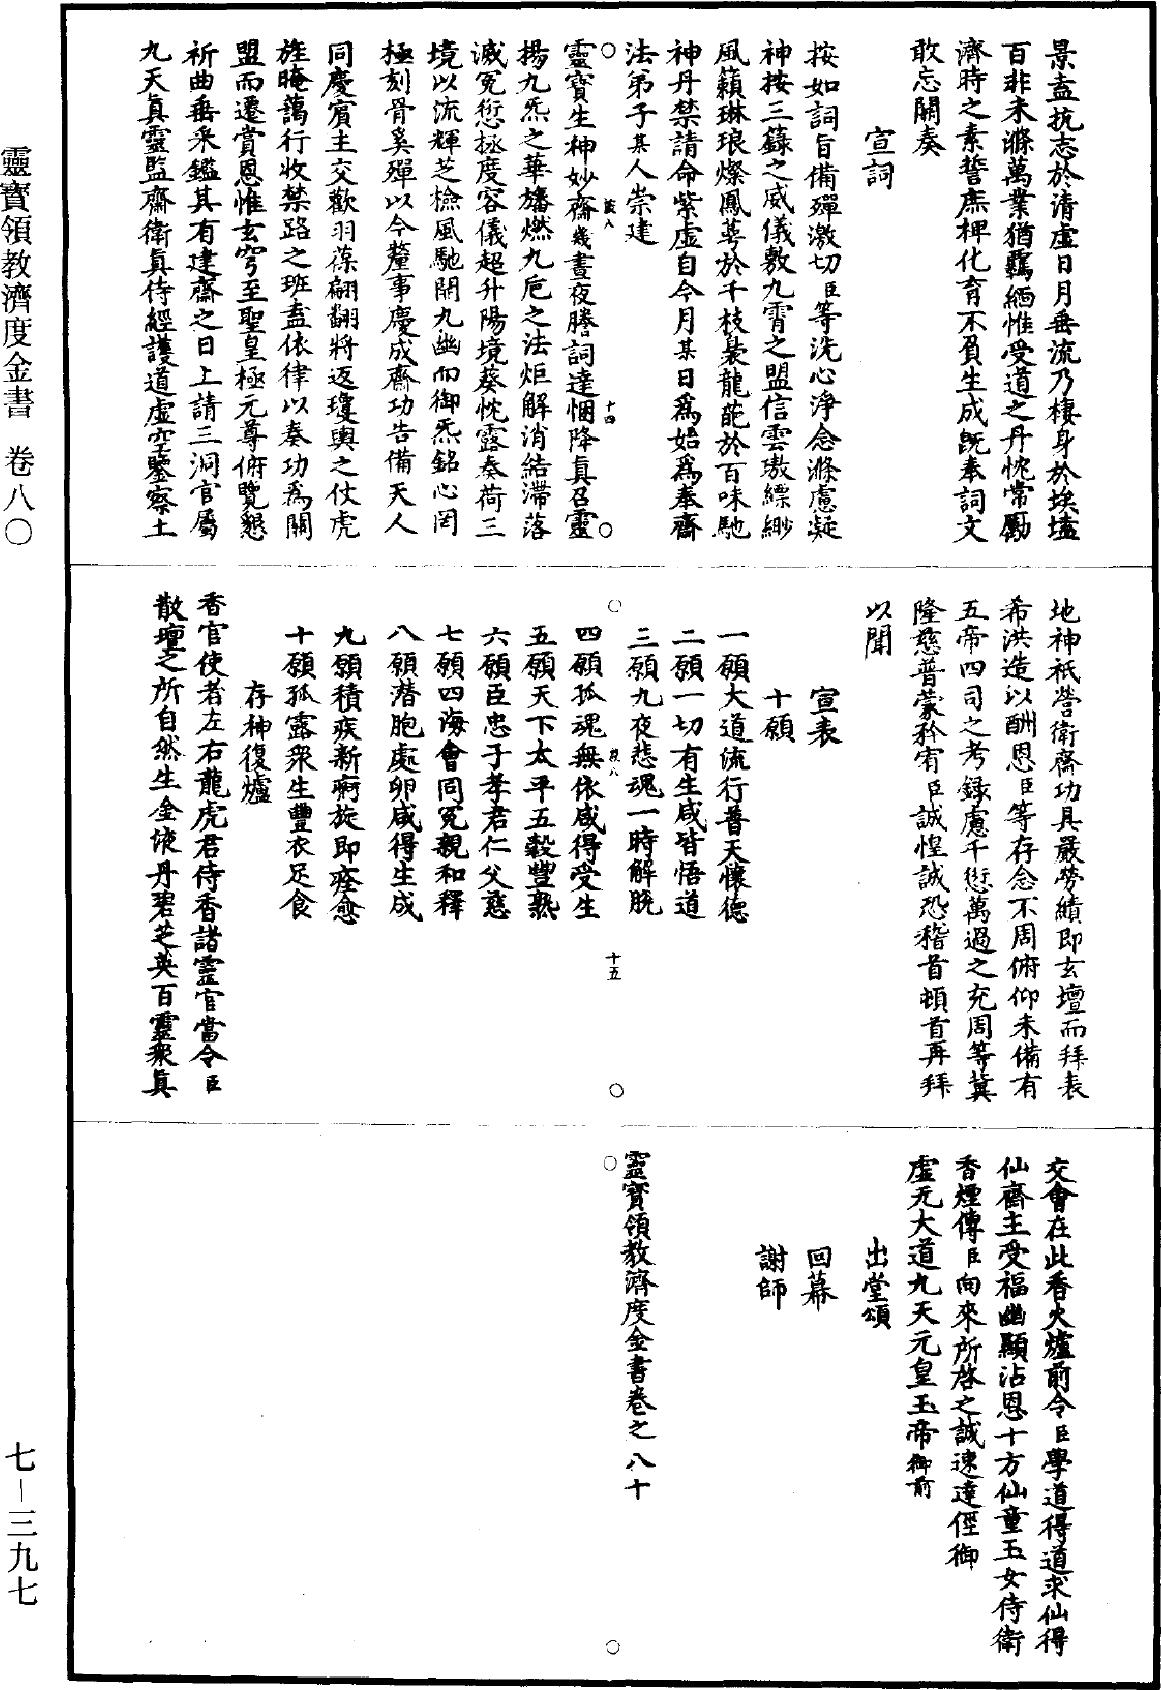 景盍抗志於清虛日月垂流乃棲身於埃壒
百非未滌萬業猶羈緬惟受道之丹忱常勵
濟時之素誓庶裨化育不負生成既奉詞文
敢忘關奏
宣詞
按如詞旨備殫激切臣等洗心淨念滌慮凝
神按三籙之威儀敷九霄之盟信雲璈縹緲
風籟琳琅燦鳳萼於千枝裊龍葩於百味馳
神丹禁請命紫虛自今月某日爲始爲奉齋
法弟子某人崇建
靈寶生神妙齋幾晝夜騰詞達悃降真召靈
揚九炁之華旛燃九巵之法炬解消結滯落
滅冤愆拯度容儀超升陽境葵忱露奏荷三
境以流輝芝檢風馳開九幽而御炁銘心罔
極刻骨奚殫以今釐事慶成齋功告備天人
同慶賓主交歡羽葆翩翻將返瓊輿之仗虎
旌晻藹行收禁路之班盍依律以奏功爲關
盟而遷賞恩惟玄穹至聖皇極元尊俯覽懇
祈曲垂采鑑其有建齋之日上請三洞官屬
九天真靈監齋衛真侍經護道虛空鑒察土
十四
地神祇營衛齋功具嚴勞績即玄壇而拜表
希洪造以酬恩臣等存念不周俯仰未備有
五帝四司之考錄慮千愆萬過之充周等冀
隆慈普蒙矜宥臣誠惶誠恐稽首頓首再拜
以聞
宣表
十願
一願大道流行普天懷德
二願一切有生咸皆悟道
三願九夜悲魂一時解脫
四願孤魂無依咸得受生
五願天下太平五穀豐熟
六願臣忠子孝君仁父慈
七願四海會同冤親和釋
八願潛胞處卵咸得生成
九願積疾新痾旋即痊愈
十願孤露眾生豐衣足食
存神復爐
香官使者左右龍虎君侍香諸靈官當令臣
散壇之所自然生金液丹碧芝英百靈眾真
十五
交會在此香火爐前令臣學道得道求仙得
仙齋主受福幽顯沾恩十方仙童玉女侍衛
香煙傳臣向來所啓之誠速達徑御
虛无大道九天元皇玉帝御前
出堂頌
回幕
謝師
靈寶領教濟度金書卷之八十
靈寶領教濟度金書 卷八〇
七—三九七